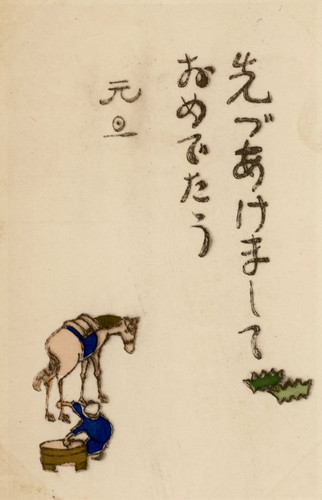 先づあけまして
おめでたう
元旦